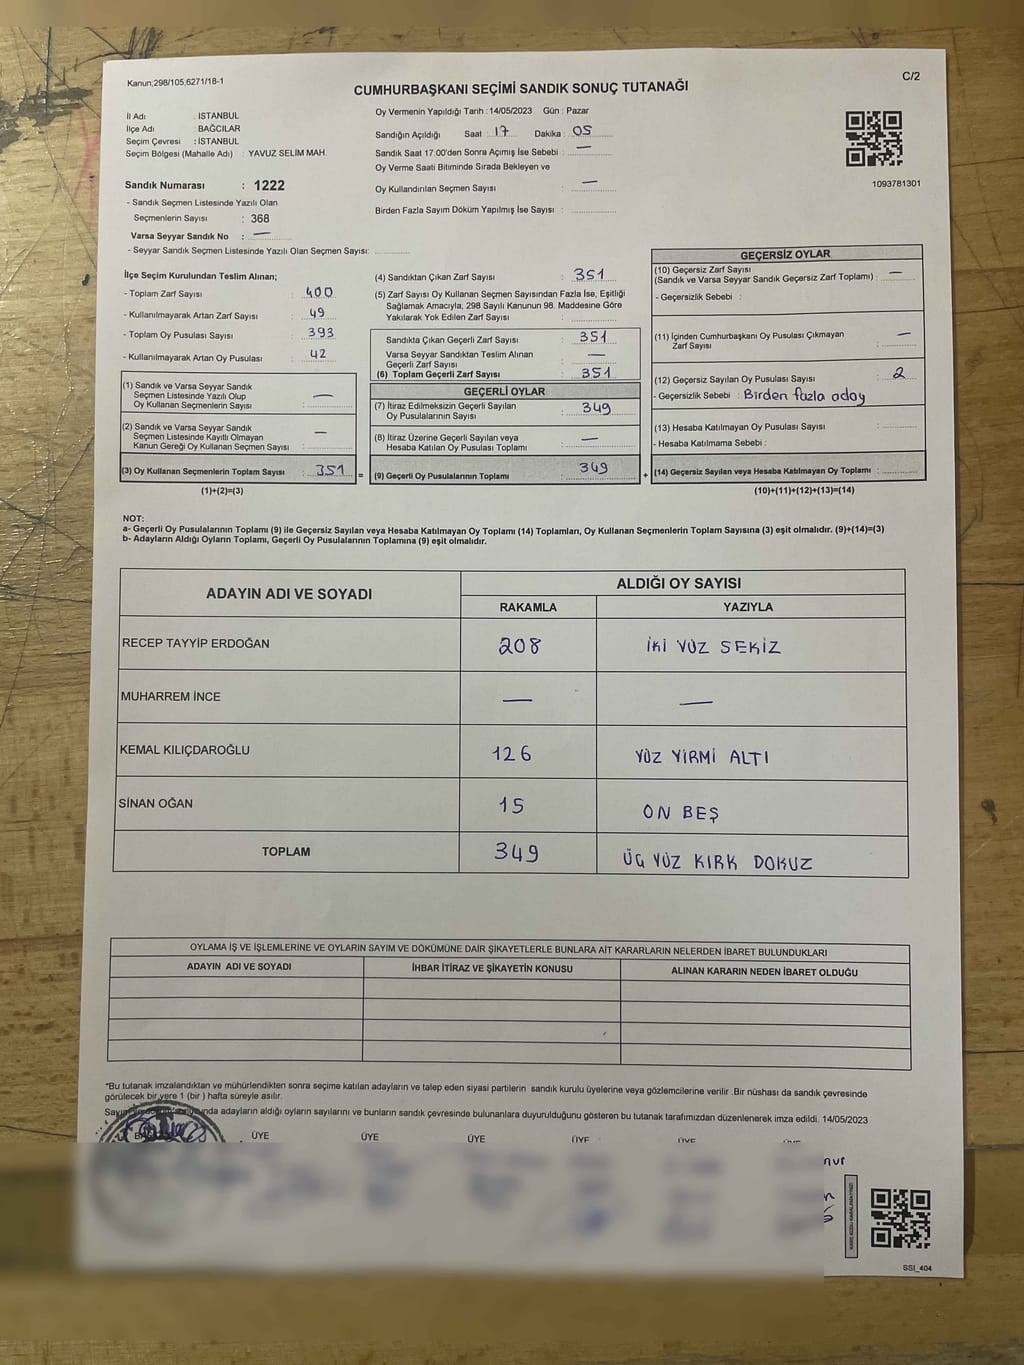 Kanun;298/105,6271/18-1
C/2
CUMHURBAŞKANI SEÇİMİ SANDIK SONUÇ TUTANAĞI
İl Adı : İSTANBUL
İlçe Adı : BAĞCILAR
Seçim Çevresi : İSTANBUL
Seçim Bölgesi (Mahalle Adı) : YAVUZ SELİM MAH.
Sandık Numarası : 1222
- Sandık Seçmen Listesinde Yazılı Olan
Seçmenlerin Sayısı : 368
Varsa Seyyar Sandık No : —
- Seyyar Sandık Seçmen Listesinde Yazılı Olan Seçmen Sayısı:
Oy Vermenin Yapıldığı Tarih : 14/05/2023 Gün : Pazar
Sandığın Açıldığı Saat : 17 Dakika : 05
Sandık Saat 17:00'den Sonra Açımış İse Sebebi : —
Oy Verme Saati Bitiminde Sırada Bekleyen ve
Oy Kullandırılan Seçmen Sayısı : —
Birden Fazla Sayım Döküm Yapılmış İse Sayısı :
1093781301
İlçe Seçim Kurulundan Teslim Alınan;
- Toplam Zarf Sayısı : 400
- Kullanılmayarak Artan Zarf Sayısı : 49
- Toplam Oy Pusulası Sayısı : 393
- Kullanılmayarak Artan Oy Pusulası : 42
(1) Sandık ve Varsa Seyyar Sandık
Seçmen Listesinde Yazılı Olup
Oy Kullanan Seçmenlerin Sayısı : —
(2) Sandık ve Varsa Seyyar Sandık
Seçmen Listesinde Kayıtlı Olmayan
Kanun Gereği Oy Kullanan Seçmen Sayısı : —
(3) Oy Kullanan Seçmenlerin Toplam Sayısı : 351
(1)+(2)=(3)
=
(4) Sandıktan Çıkan Zarf Sayısı : 351
(5) Zarf Sayısı Oy Kullanan Seçmen Sayısından Fazla İse, Eşitliği
Sağlamak Amacıyla; 298 Sayılı Kanunun 98. Maddesine Göre
Yakılarak Yok Edilen Zarf Sayısı :
Sandıkta Çıkan Geçerli Zarf Sayısı : 351
Varsa Seyyar Sandıktan Teslim Alınan
Geçerli Zarf Sayısı : —
(6) Toplam Geçerli Zarf Sayısı : 351
GEÇERLİ OYLAR
(7) İtiraz Edilmeksizin Geçerli Sayılan
Oy Pusulalarının Sayısı : 349
(8) İtiraz Üzerine Geçerli Sayılan veya
Hesaba Katılan Oy Pusulası Toplamı : —
(9) Geçerli Oy Pusulalarının Toplamı : 349
+
GEÇERSİZ OYLAR
(10) Geçersiz Zarf Sayısı
(Sandık ve Varsa Seyyar Sandık Geçersiz Zarf Toplamı) : —
- Geçersizlik Sebebi :
(11) İçinden Cumhurbaşkanı Oy Pusulası Çıkmayan
Zarf Sayısı : —
(12) Geçersiz Sayılan Oy Pusulası Sayısı : 2
- Geçersizlik Sebebi : Birden fazla aday
(13) Hesaba Katılmayan Oy Pusulası Sayısı :
- Hesaba Katılmama Sebebi :
(14) Geçersiz Sayılan veya Hesaba Katılmayan Oy Toplamı :
(10)+(11)+(12)+(13)=(14)
NOT:
a- Geçerli Oy Pusulalarının Toplamı (9) ile Geçersiz Sayılan veya Hesaba Katılmayan Oy Toplamı (14) Toplamları, Oy Kullanan Seçmenlerin Toplam Sayısına (3) eşit olmalıdır. (9)+(14)=(3)
b- Adayların Aldığı Oyların Toplamı, Geçerli Oy Pusulalarının Toplamına (9) eşit olmalıdır.
ADAYIN ADI VE SOYADI
ALDIĞI OY SAYISI
RAKAMLA YAZIYLA
RECEP TAYYİP ERDOĞAN 208 İKİ YÜZ SEKİZ
MUHARREM İNCE — —
KEMAL KILIÇDAROĞLU 126 YÜZ YİRMİ ALTI
SİNAN OĞAN 15 ON BEŞ
TOPLAM 349 ÜÇ YÜZ KIRK DOKUZ
OYLAMA İŞ VE İŞLEMLERINE VE OYLARIN SAYIM VE DÖKÜMÜNE DAİR ŞİKAYETLERLE BUNLARA AİT KARARLARIN NELERDEN İBARET BULUNDUKLARI
ADAYIN ADI VE SOYADI İHBAR İTİRAZ VE ŞİKAYETİN KONUSU ALINAN KARARIN NEDEN İBARET OLDUĞU
*Bu tutanak imzalandıktan ve mühürlendikten sonra seçime katılan adayların ve talep eden siyasi partilerin sandık kurulu üyelerine veya gözlemcilerine verilir .Bir nüshası da sandık çevresinde
görülecek bir yere 1 (bir ) hafta süreyle asılır.
adayların aldığı oyların sayılarını ve bunların sandık çevresinde bulunanlara duyurulduğunu gösteren bu tutanak tarafımızdan düzenlenerek imza edildi. 14/05/2023
ÜYE ÜYE ÜYE ÜYE ÜYE ÜYE
SSI_404